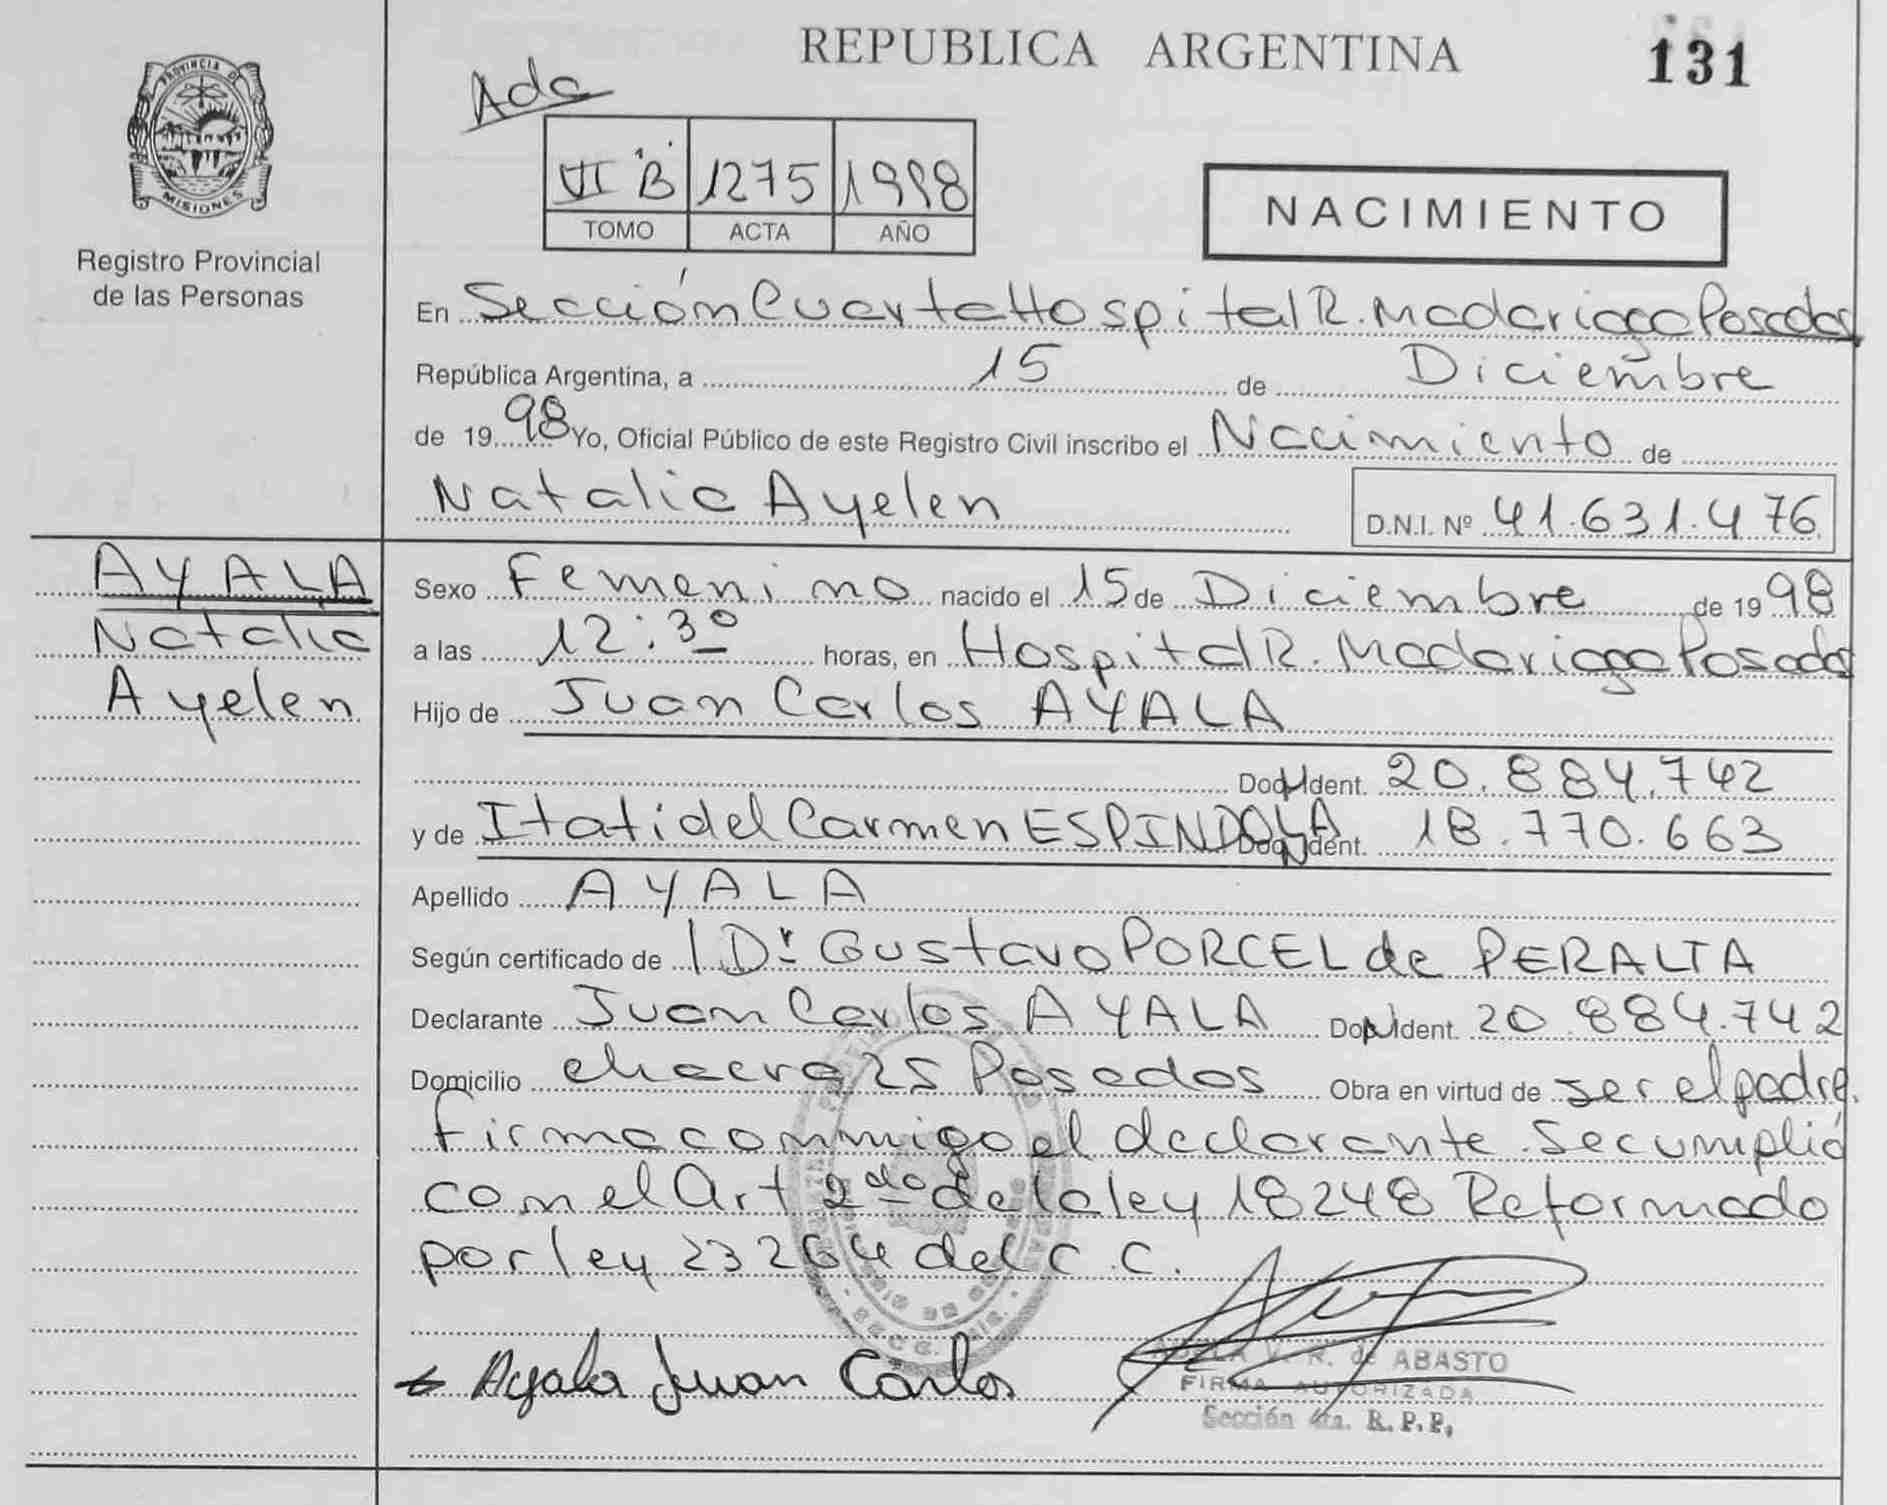 REPUBLICA ARGENTINA
131
PROVINCIA DE
MISIONES
Registro Provincial
de las Personas
Ada
VI "B" 1275 1998
TOMO ACTA AÑO
NACIMIENTO
En Sección Cuarta Hospital R. Madariaga Posadas
República Argentina, a 15 de Diciembre
de 1998 Yo, Oficial Público de este Registro Civil inscribo el Nacimiento de
Natalia Ayelen D.N.I. Nº 41.631.476
AYALA
Natalia
Ayelen
Sexo Femenino nacido el 15 de Diciembre de 1998
a las 12:30 horas, en Hospital R. Madariaga Posadas
Hijo de Juan Carlos AYALA
Doc. Ident. 20.884.742
y de Itati del Carmen ESPINDOLA Doc. Ident. 18.770.663
Apellido AYALA
Según certificado de Dr Gustavo PORCEL de PERALTA
Declarante Juan Carlos AYALA Doc. Ident. 20.884.742
Domicilio chacra 25 Posadas Obra en virtud de ser el padre.
Firma conmigo el declarante. Se cumplió
con el Art 2do de la ley 18248 Reformado
por ley 23264 del C.C.
Ayala Juan Carlos
V. R. de ABASTO
FIRMA AUTORIZADA
Sección 4ta. R.P.P.